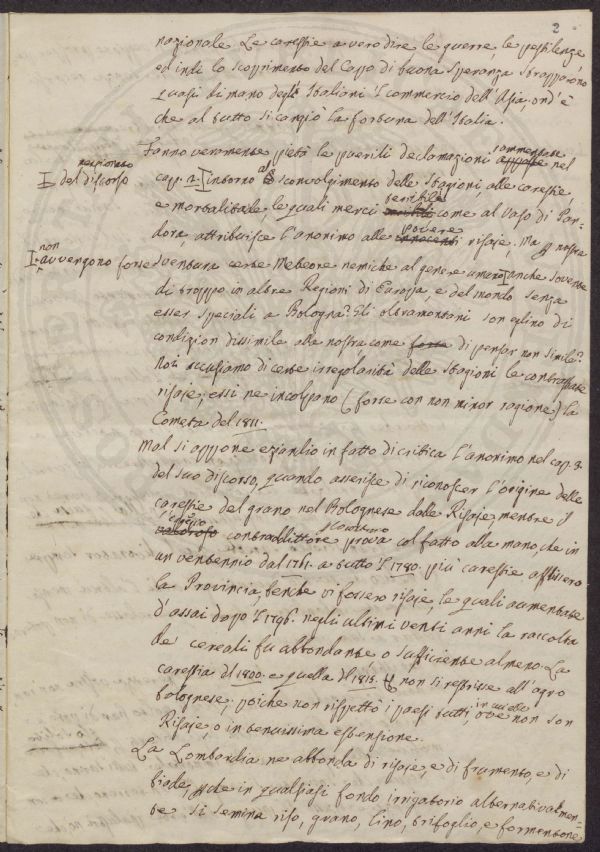 2
nazionale. Le carestie a vero dire le guerre, le pestilenze
ed indi lo scoprimento del Capo di buona Speranza strapparono
quasi di mano degl'Italiani il commercio dell'Asia, ond'è
che al tutto si cangiò la fortuna dell'Italia.
Fanno veramente pietà le puerili declamazioni rammentate nel
mentovato
del discorso
cap. 2. intorno al sconvolgimento delle stagioni, alle carestie,
terribili
e mortalità, le quali merci come al Vaso di Pan-
povere
dora, attribuisce l'anonimo alle innocenti risaje. Ma p nostra
non
avvengono forse
sventura certe Meteore nemiche al genere umano anche sovente
di troppo in altre Regioni di Europa, e del mondo senza
esser speciali a Bologna? Gli oltramontani son eglino di
condizion dissimile alla nostra come forse di pensar non simile?
Noi accusiamo di certe irregolarità delle stagioni le contrastate
risaje; essi ne incolpano (forse con non minor ragione) la
Cometa del 1811.
Mal si appone eziandio in fatto di critica l'anonimo nel cap. 3.
del suo discorso, quando asserisce di riconoscer l'origine delle
carestie del grano nel Bolognese dalle Risaje, mentre il
valoroso contraddittore prova col fatto alla mano, che in
un ventennio dal 1761. a tutto il 1780. più carestie afflissero
la Provincia, benche vi fossero risaje, le quali aumentate
d'assai dopo il 1796. negli ultimi venti anni la raccolta
de' cereali fu abbondante, o sufficiente almeno. La
carestia del 1800. e quella del 1815. non si restrinse all'agro
bolognese; poiche non rispettò i paesi tutti, ove non son
Risaje, o in tenuissima estensione.
La Lombardia ne abbonda di risaje, e di frumento, e di
biade, perche in qualsiasi fondo irrigatorio alternativamen-
te si semina riso, grano, lino, trifoglio, e formentone